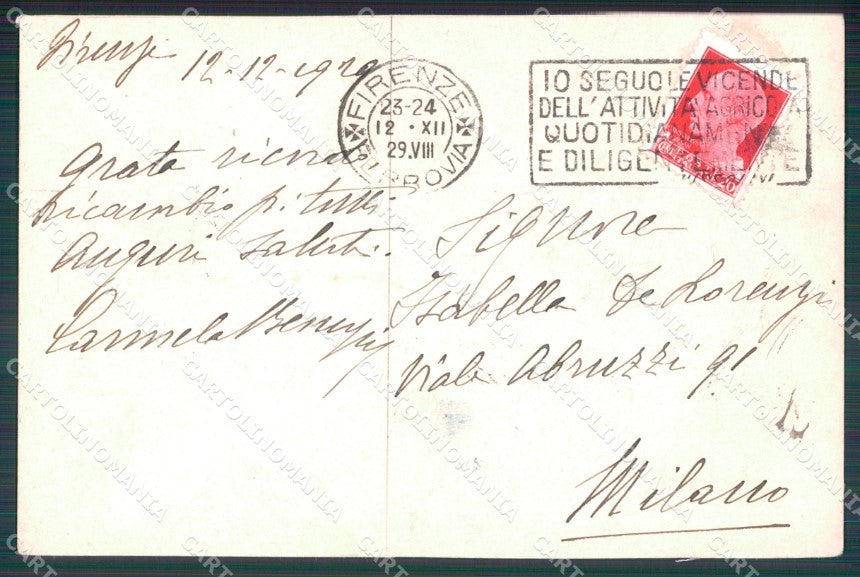 Firenze 12-12-1929
Grata ricordo
ricambio p. tutti
Auguri saluti.
Carmela Benezzi
FIRENZE
23-24
12 · XII
29.VIII
FERROVIA
IO SEGUO LE VICENDE
DELL'ATTIVITA AGRICOLA
QUOTIDIANAMENTE
E DILIGENTEMENTE
Signora
Isabella De Lorenzi
Viale Abruzzi 91
Milano
CARTOLINOMANIA